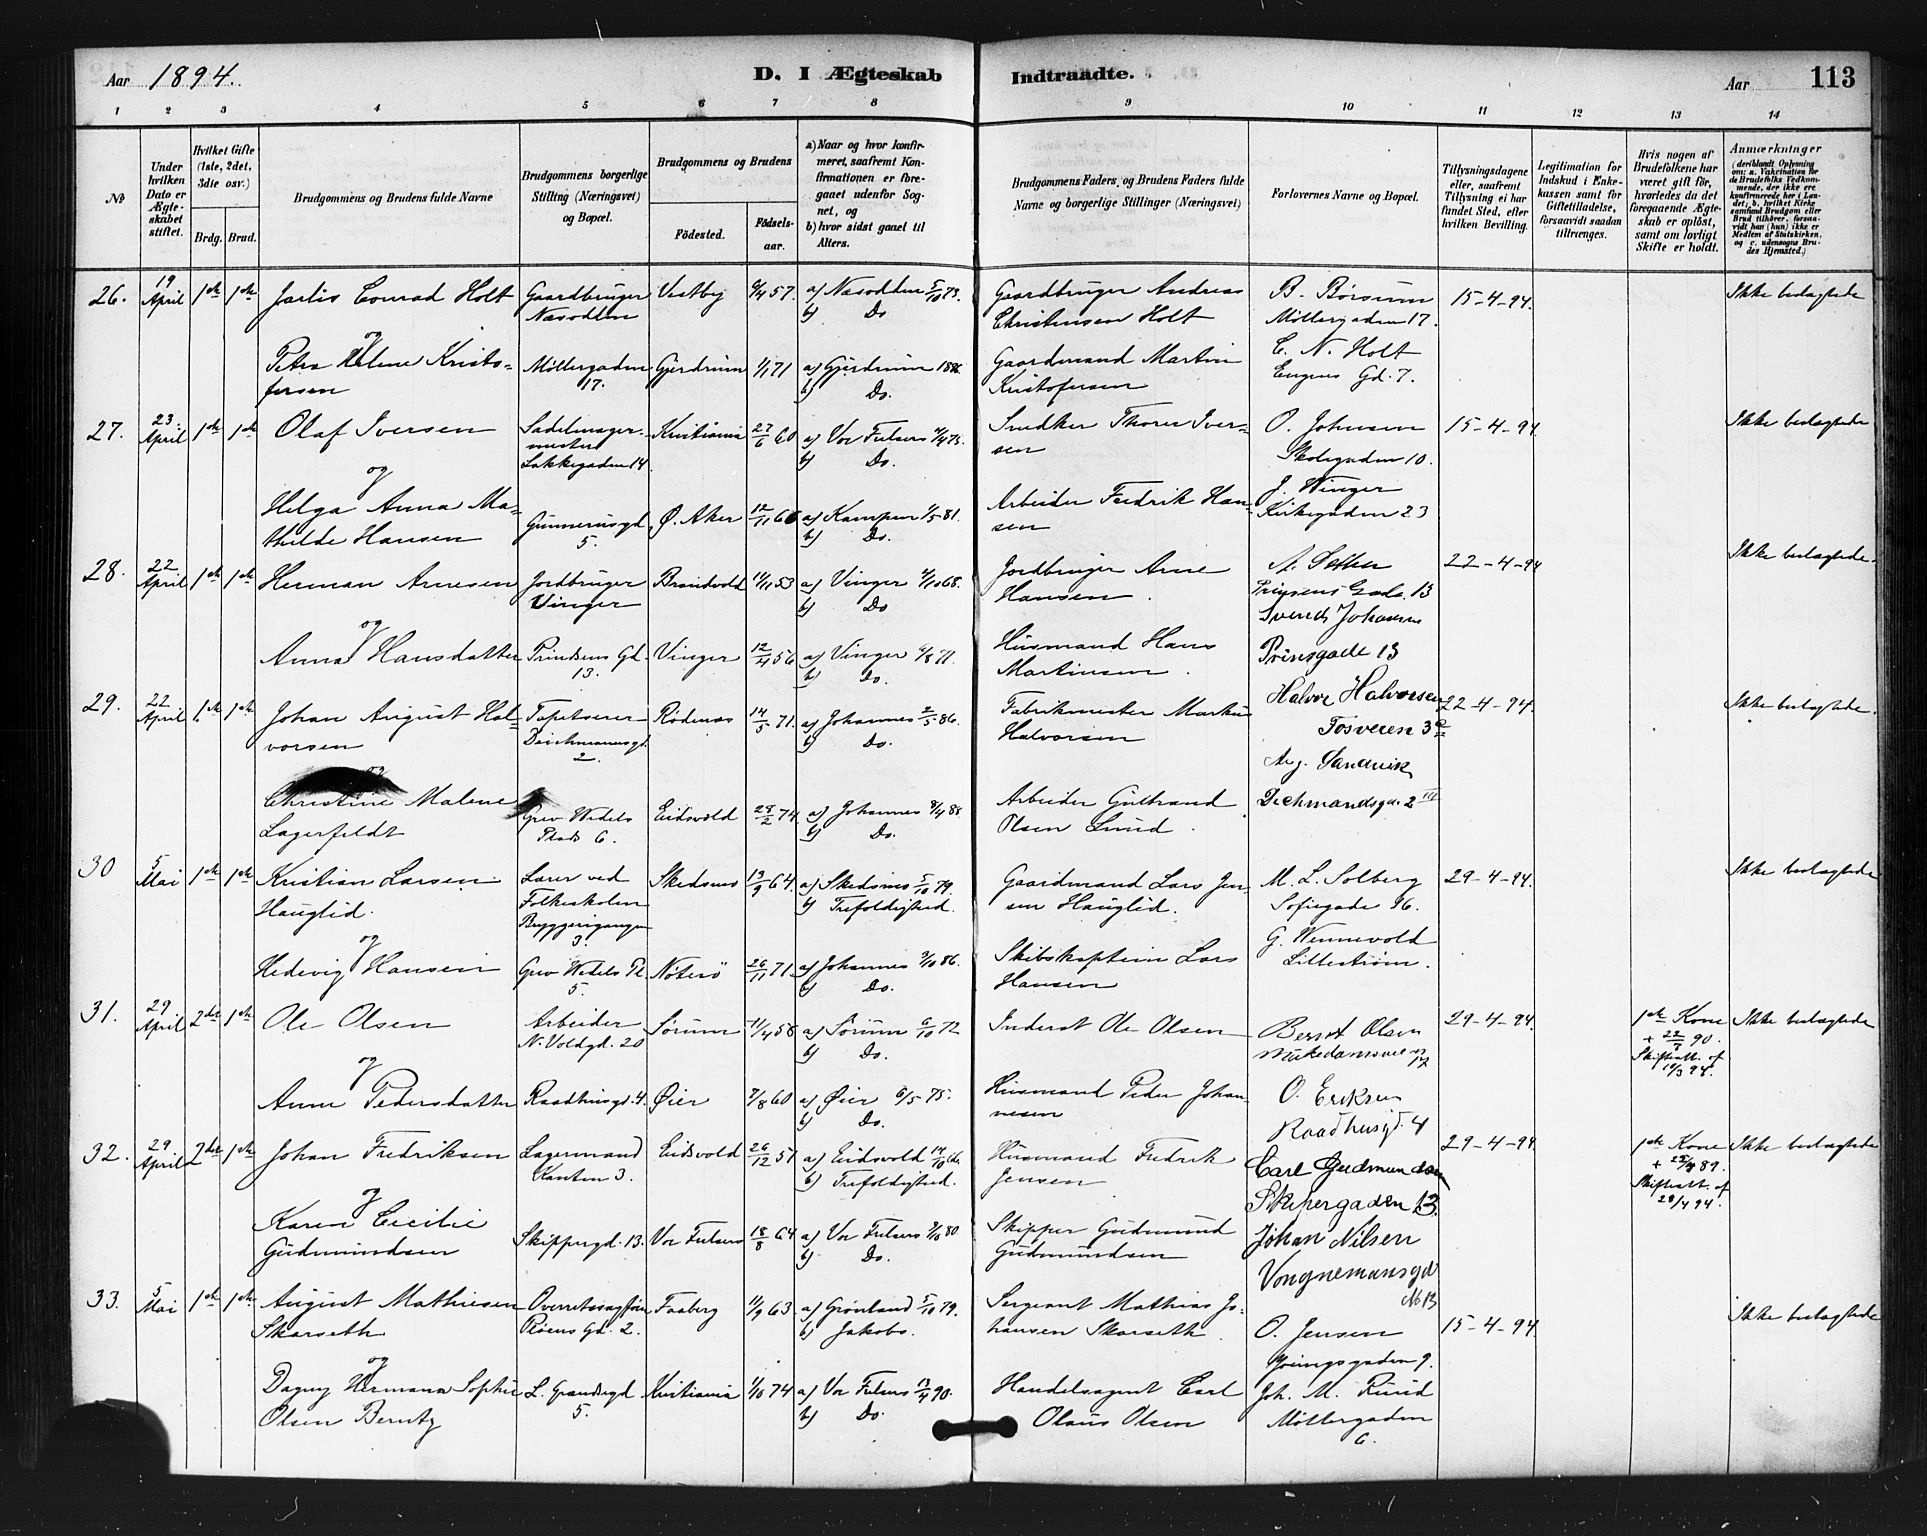 Aar 1894. D. I Ægteskab Indtraadte. Aar 113
1 2 3 4 5 6 7 8 9 10 11 12 13 14
№
Under hvilken Dato er Ægteskabet stiftet.
Hvilket Gifte (1ste, 2det, 3die osv.)
Brdg. Brud.
Brudgommens og Brudens fulde Navne
Brudgommens borgerlige Stilling (Næringsvei) og Bopæl.
Brudgommens og Brudens
Fødested. Fødselsaar.
a) Naar og hvor konfirmeret, saafremt Konfirmationen er foregaaet udenfor Sognet, og
b) hvor sidst gaaet til Alters.
Brudgommens Faders, og Brudens Faders fulde Navne og borgerlige Stillinger (Næringsvei)
Forlovernes Navne og Bopæl.
Tillysningsdagene eller, saafremt Tillysning ei har fundet Sted, efter hvilken Bevilling.
Legitimation for Indskud i Enkekassen samt for Giftetilladelse, forsaavidt saadan tiltrænges.
Hvis nogen af Brudefolkene har været gift før, hvorledes da det foregaaende Ægteskab er opløst, samt om lovligt Skifte er holdt.
Anmærkninger
26. 19 April 1ste 1ste Jarlis Conrad Holt Gaardbruger Næsodden Vestby 9/4 57. a) Næsodden 5/10 73. b) Do Gaardbruger Andreas Christensen Holt B. Børsum Møllergaden 17. 15-4-94. Ikke beslægtede
og
Petra Helene Kristofersen Møllergaden 17. Gjerdrum 1/1 71 a) Gjerdrum b) Do. Gaardmand Martin Kristofersen C. N. Holt Eugenis Gd. 7.
27. 23 April 1ste 1ste Olaf Iversen Sadelmagermester Lakkegaden 14 Kristiania 27/6 60 a) Vor Frelsers b) Do. Snedker Thorer Iversen O. Johnsen Skolegaden 10. 15-4-94. Ikke beslægtede
og
Helga Anna Mathilde Hansen Gunnerusgd. 5. Ø. Aker 12/11 66 a) Kampen 1/5 81. b) Do. Arbeider Fredrik Hansen J. Winger Kirkegaden 23
28. 22 April 1ste 1ste Herman Arnesen Jordbruger Vinger Brandvold 11/11 53 a) Vinger 4/10 68. b) Do Jordbruger Arne Hansen. A. Sether Prinsens Gade. 13 22-4-94 Ikke beslægtede.
og
Anna Hansdatter Prindsens Gd. 13. Vinger 12/4 56 a) Vinger 6/8 71. b) Do. Husmand Hans Martinsen. Svend Johansen Prinsgade 13
29. 22 April 1ste 1ste Johan August Halvorsen Tapetserer Deichmannsgd. 2. Rødenæs 14/5 71. a) Johannes 2/5 86. b) Do. Fabrikmester Markus Halvorsen Halvor Halvorsen Fosveien 3 22-4-94. Ikke beslægtede.
og
Christine Malene Lagerfeldt Grev Wedels Plads 6. Eidsvold 28/2 74 a) Johannes 8/4 88 b) Do. Arbeider Gulbrand Olsen Lund. Aug. Sandvik Dechmandsgd. 2 III
30 5 Mai 1ste 1ste Kristian Larsen Hauglid. Lærer ved Folkeskolen Bryggerigangen 3. Skedsmo 13/9 64. a) Skedsmo 5/10 79. b) Trefoldighed. Gaardmand Lars Jensen Hauglid. M. L. Solberg Sofiegade 16. 29-4-94. Ikke beslægtede
og
Hedevig Hansen Grev Wedels Pl. 5. Nøterø 26/11 71. a) Johannes 3/10 86. b) Do. Skibskaptein Lars Hansen G. Wennevold Lillestrøm.
31. 29 April 2det 1ste Ole Olsen Arbeider N. Voldgd. 20 Sørum 11/4 58 a) Sørum 6/10 72 b) Do. Inderst Ole Olsen Bernt Olsen Munkedamsvei 17 29-4-94. 1ste Kone + 22/7 90. Skifteatt. af 10/3 94. Ikke beslægtede
og
Anne Pedersdatter Raadhusgd. 4. Øier 7/8 60 a) Øier 6/5 75. b) Do. Husmand Peder Johannesen O. Eriksen Raadhusgd. 4
32. 29 April 2det 1ste Johan Fredriksen Lagermand Kanten 3. Eidsvold 26/12 51 a) Eidsvold b) Trefoldighed. Husmand Fredrik Jensen Carl Gudmundsen Skipergaden 13. 29-4-94. 1ste Kone + 89. Skifteatt. af 28/4 94. Ikke beslægtede
og
Karen Cecilie Gudmundsen Skippergd. 13. Vor Frelsers 18/8 64 a) Vor Frelsers 3/10 80 b) Do. Skipper Gudmund Gudmundsen Johan Nilsen Vongnemansgd No 13
33. 5 Mai 1ste 1ste August Mathiesen Skarseth Overretssagfører Pløens Gd. 2. Faaberg 11/9 63 a) Grønland 5/10 79. b) Jakobs. Sergeant Mathias Johansen Skarseth. O. Jensen 9. 15-4-94. Ikke beslægtede
og
Dagny Hermana Sophie Olsen Berntz L. Grændsegd 5. Kristiania 1/10 74 a) Vor Frelsers 13/4 90. b) Do. Handelsagent Carl Olaus Olsen Joh. M. Ruud Møllergaden 6.